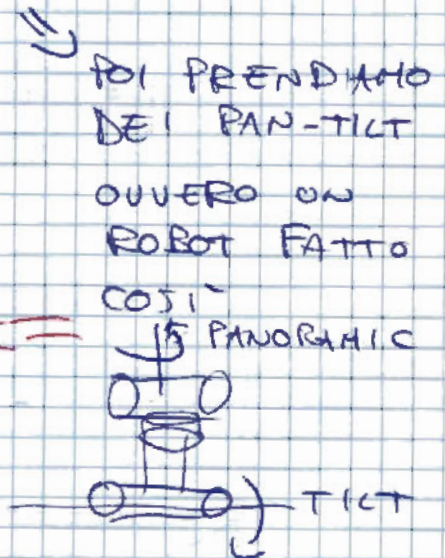 POI PRENDIAMO
DEI PAN-TILT
OVVERO UN
ROBOT FATTO
COSI`
PANORAMIC
TILT